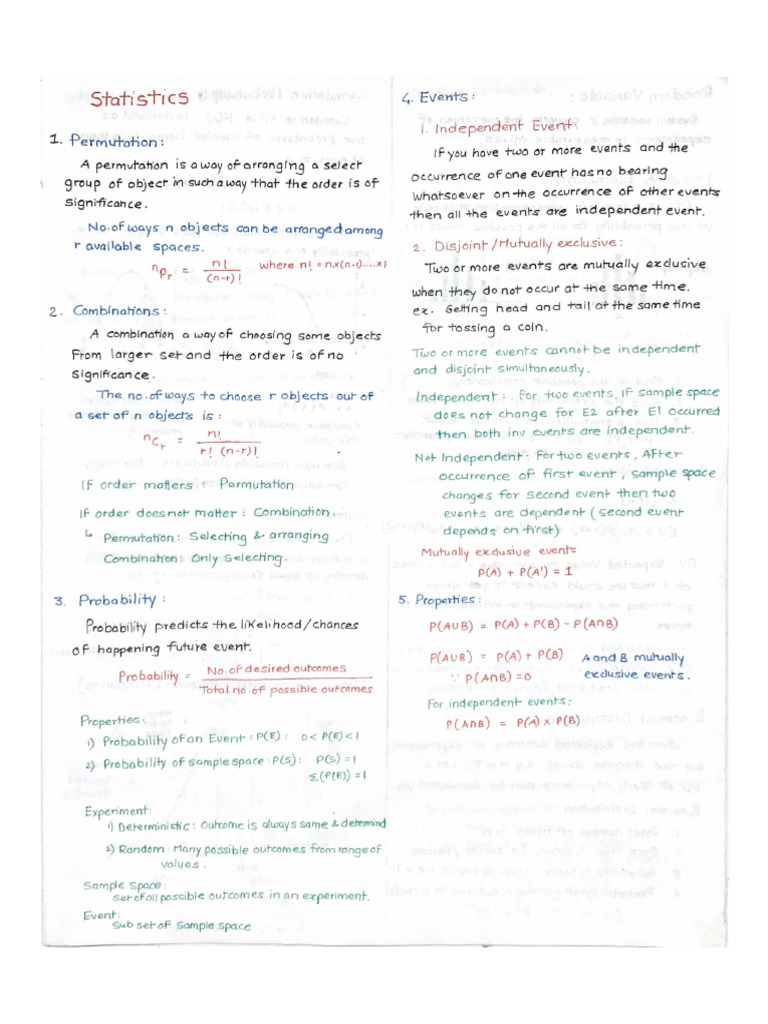 Statistics
1. Permutation:
A permutation is a way of arranging a select
group of object in such a way that the order is of
significance.
No. of ways n objects can be arranged among
r available spaces.
nPr = n! / (n-r)! where n! = n×(n-1)....×1
2. Combinations:
A combination a way of choosing some objects
From larger set and the order is of no
significance.
The no. of ways to choose r objects out of
a set of n objects is:
nCr = n! / r! (n-r)!
If order matters : Permutation
If order does not matter : Combination.
↳ Permutation: Selecting & arranging
Combination: Only Selecting.
3. Probability:
Probability predicts the likelihood/chances
of happening future event.
Probability = No. of desired outcomes / Total no. of possible outcomes
Properties:
1) Probability of an Event : P(E) : 0 < P(E) < 1
2) Probability of sample space : P(S) : P(S) = 1
Σ(P(E)) = 1
Experiment:
1) Deterministic : Outcome is always same & determind
2) Random : Many possible outcomes from range of
values.
Sample Space:
set of all possible outcomes in an experiment.
Event:
Sub set of Sample space
4. Events:
1. Independent Event:
If you have two or more events and the
occurrence of one event has no bearing
whatsoever on the occurrence of other events
then all the events are independent event.
2. Disjoint/Mutually exclusive:
Two or more events are mutually exclusive
when they do not occur at the same time.
ex. Getting head and tail at the same time
for tossing a coin.
Two or more events cannot be independent
and disjoint simultaneously.
Independent : For two events, if sample space
does not change for E2 after E1 occurred
then both inv events are independent.
Not Independent : For two events, After
occurrence of first event, sample space
changes for second event then two
events are dependent (second event
depends on first)
Mutually exclusive events
P(A) + P(A') = 1
5. Properties:
P(A∪B) = P(A) + P(B) - P(A∩B)
P(A∪B) = P(A) + P(B) A and B mutually
∵ P(A∩B) = 0 exclusive events.
For independent events:
P(A∩B) = P(A) × P(B)